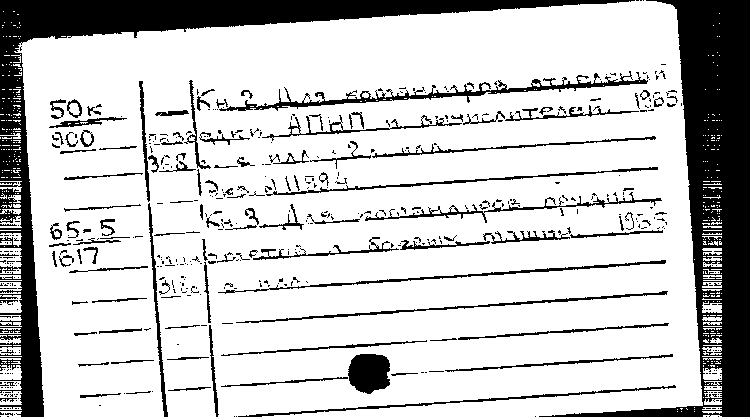 50к — Кн. 2. Для командиров отделений
900 разведки, АПНП и вычислителей. 1965.
368 с. с илл.; 2 л. илл.
Экз. № 11994.
65-5 Кн. 3. Для командиров орудий,
1617 минометов и боевых машин. 1965
318с. с илл.